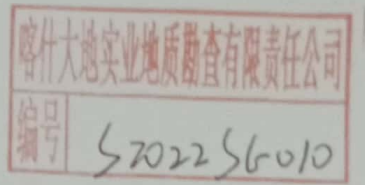 喀什大地实业地质勘查有限责任公司
编号 SZ022SG010